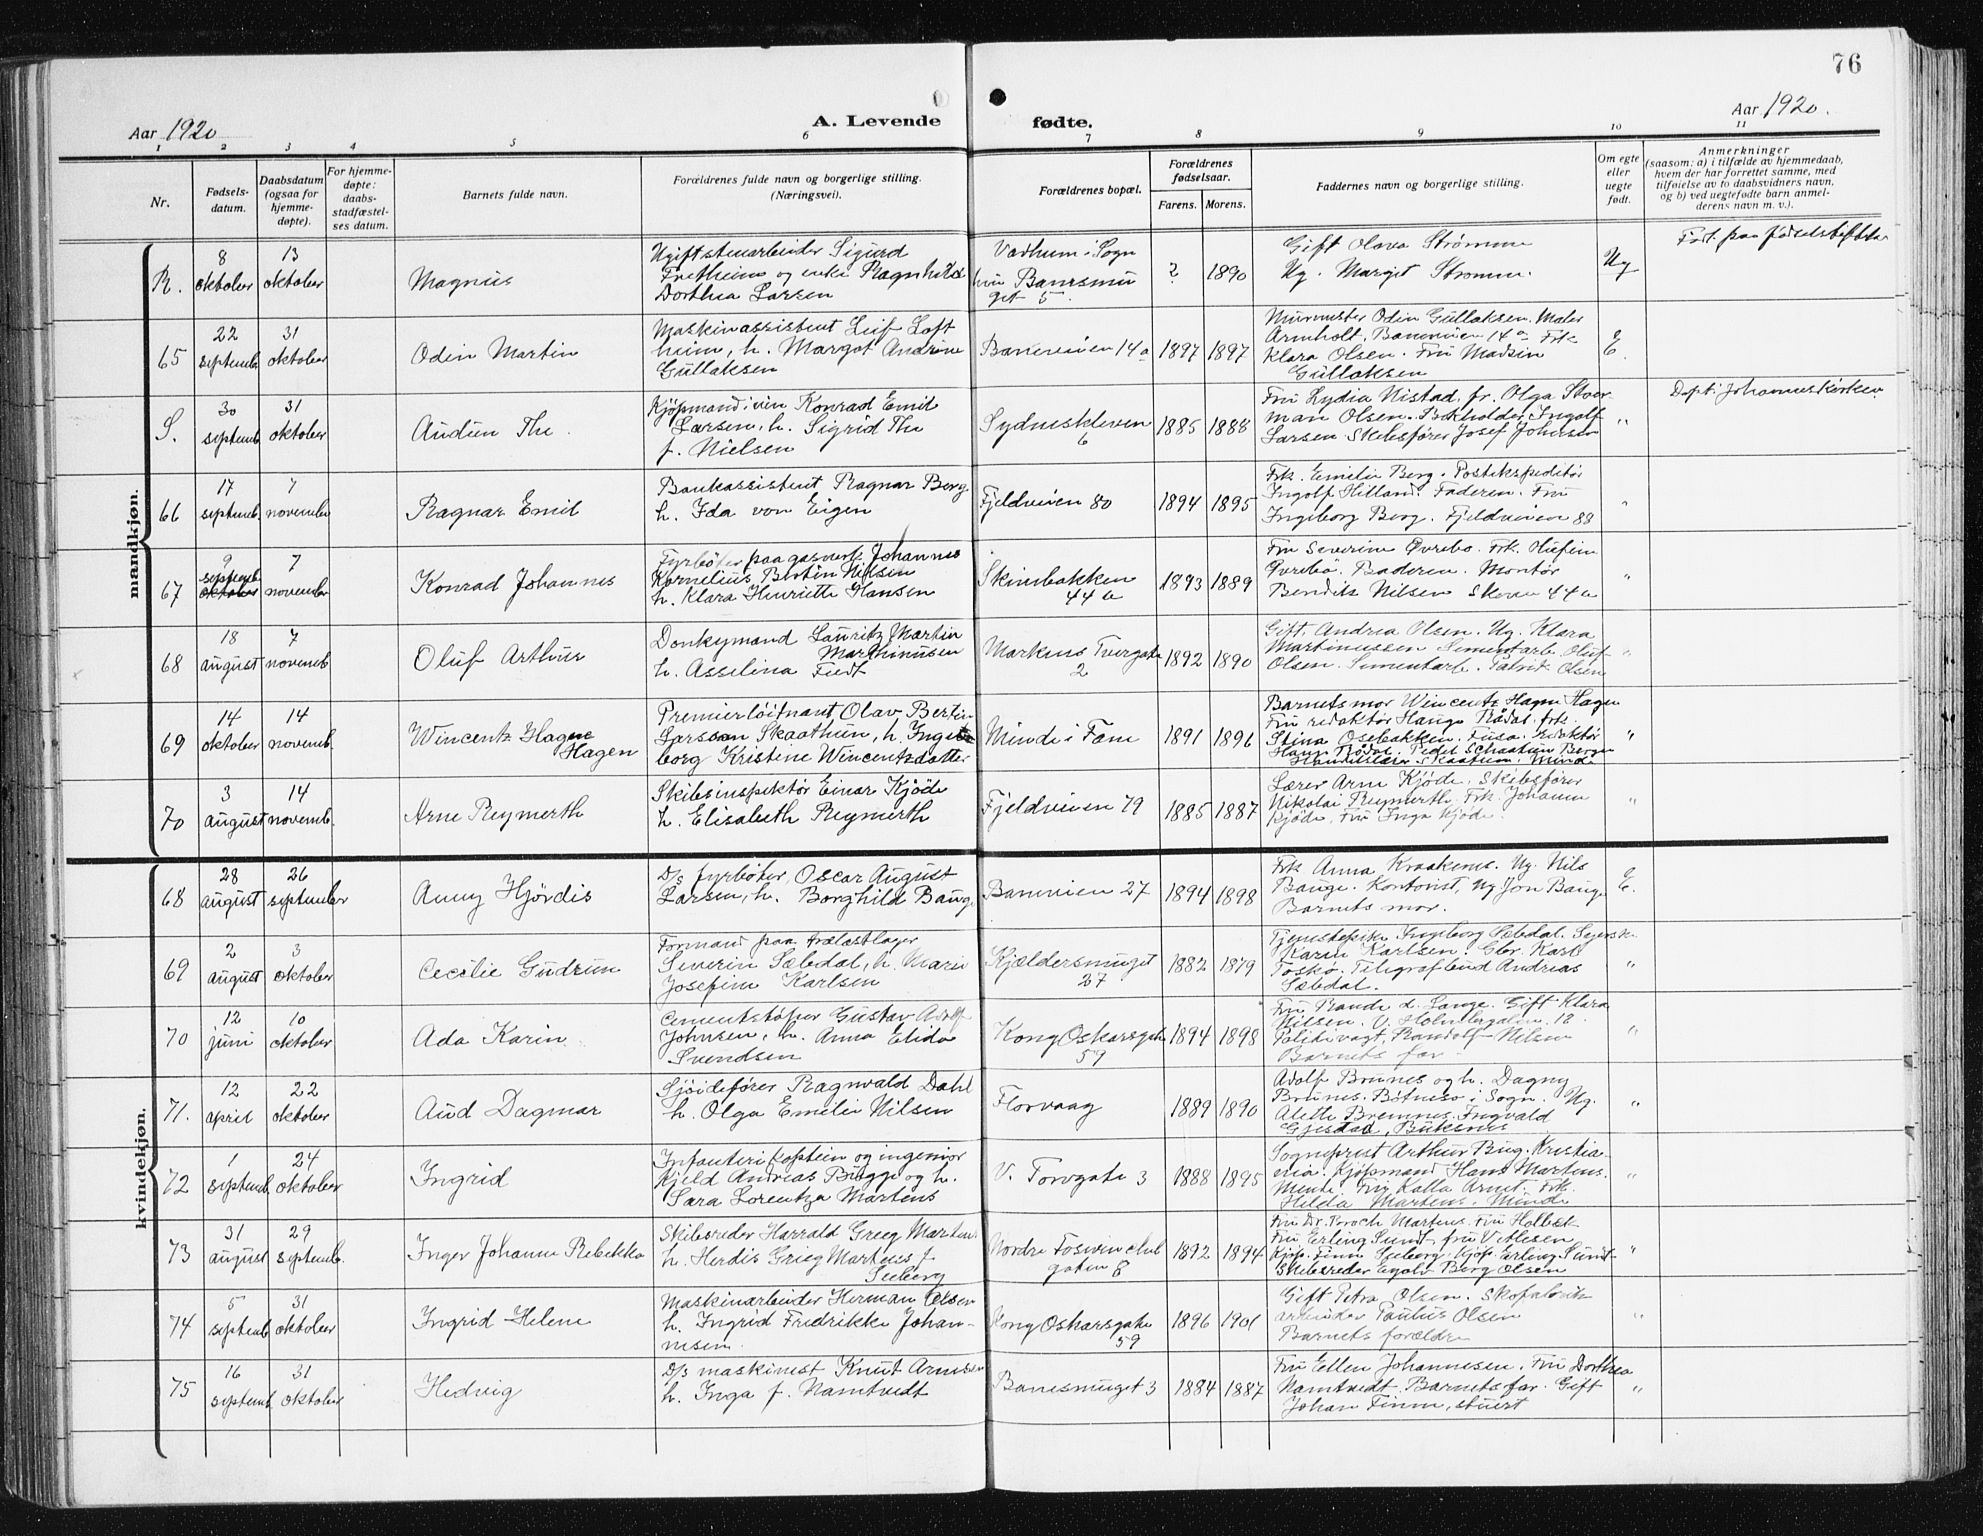 76
Aar 1920
A. Levende
fødte.
Aar 1920.
1 2 3 4 5 6 7 8 9 10 11
Nr.
Fødsels-
datum.
Daabsdatum
(ogsaa for
hjemme-
døpte).
For hjemme-
døpte:
daabs-
stadfæstel-
ses datum.
Barnets fulde navn.
Forældrenes fulde navn og borgerlige stilling.
(Næringsvei).
Forældrenes bopæl.
Forældrenes
fødselsaar.
Farens. Morens.
Faddernes navn og borgerlige stilling.
Om egte
eller
uegte
født.
Anmerkninger
(saasom: a) i tilfælde av hjemmedaab,
hvem der har forrettet samme, med
tilføielse av to daabsvidners navn,
og b) ved uegtefødte barn anmel-
derens navn m. v.).
mandkjøn.
R.
8
oktober
13
oktober
Magnus
Ugift stenarbeider Sigurd
Fretheim og enke Ragnhild
Dorthea Larsen
Vadheim i Sogn
hun Banesmu
get 5
? 1890
Gift Olava Strømme
Ug. Marget Strømme.
Ug
65
22
septemb.
31
oktober
Odin Martin
Maskinassistent Leif Loft
heim, h. Margot Andrine
Gullaksen
Baneveien 14a
1897 1897
Murmester Odin Gullaksen. Maler
Armholt. Baneveien 14a Frk
Klara Olsen. Fru Madsin
Gullaksen
E.
S.
30
septemb.
31
oktober
Audun The
Kjøpmand i vin Konrad Emil
Larsen, h. Sigrid The
f. Nielsen
Sydneskleven
6
1885 1888
Fru Lydia Nistad, fr. Olga Stoer
man Olsen. Bokholder Ingolf
Larsen Skibsfører Josef Johnsen
"
Døpt i Johanneskirken
66
17
septemb.
7
november
Ragnar Emil
Bankassistent Ragnar Berg
h. Ida von Eigen
Fjeldveien 80
1894 1895
Frk. Emelie Berg. Postekspeditør
Ingolf Hilland. Faderen. Fru
Ingeborg Berg. Fjeldveien 88
"
67
9
septemb.
oktober
7
november
Konrad Johannes
Fyrbøter paa gasverk Johannes
Kornelius Bertin Nilsen
h. Klara Henriette Hansen
Skivebakken
44 a
1893 1889
Fru Severine Øvrebø. Frk.
Øvrebø. Faderen. Montør
Bendik Nilsen Skiven 44a
"
68
18
august
7
novemb.
Oluf Arthur
Donkeymand Lauritz Martin
Marthinusen
h. Asselina Fiedt
Markens Tvergate
2
1892 1890
Gift. Andrea Olsen. Ug. Klara
Martinussen Sementarb. Oluf
Olsen. Sementarb. Patrik Olsen
"
69
14
oktober
14
novemb.
Wincentz Hagne
Hagen
Premierløitnant Olav Bertin
Larsson Skaathun, h. Inge
borg Kristine Wincentzdatter
Minde i Fane
1891 1896
Barnets mor Wincentz Hagne Hagen
Fru redaktør Hauge Rødal. frk.
Stina Osebakken. Fusa. Redaktør
Hauge Rødal. Peder Schaatun Bergen
Handelslærer Skaatun. Minde
"
70
3
august
14
novemb.
Arne Reymerth
Skibsinspektør Einar Kjöde
h. Elisabeth Reymerth
Fjeldveien 79
1885 1887
Lærer Arne Kjöde. Skibsfører
Nikolai Reymerth. Frk. Johanne
Kjöde, Fru Inga Kjöde.
"
kvindekjøn.
68
28
august
26
september
Anny Hjørdis
D/s fyrbøter, Oscar August
Larsen, h. Borghild Bauge
Baneveien 27
1894 1898
Frk Anna Kraakenes. Ug. Nils
Bauge. Kontorist, Ug. Jon Bauge
Barnets mor.
E.
69
2
august
3
oktober
Cecilie Gudrun
Formand paa trælastlager
Severin Sæbdal, h. Marie
Josefine Karlsen
Kjældersmuget
27
1882 1879
Tjenstepike Ingeborg Sæbdal. Syersk.
Karin Karlsen. Gbr. Karl
Toskø. Telegrafbud Andreas
Sæbdal.
"
70
12
juni
10
oktober
Ada Karin
Cementstøper Gustav Adolf
Johnsen, h. Anna Elida
Svendsen
Kong Oskarsgate
59
1894 1898
Fru Rande d. Lange. Gift Klara
Nilsen. V. Holmbergalm. 12
Politivagt, Randolf Nilsen
Barnets far
"
71.
12
april
22
oktober
Aud Dagmar
Sjøidefører Ragnvald Dahl
h. Olga Emelie Nilsen
Florvaag
1889 1890
Adolf Brunes og h. Dagny
Brunes. Bøtneso i Sogn. Ug.
Alette Bremnes. Ingvald
Gjestad, Buksnes
"
72
1
septemb.
24
oktober
Ingrid
Infanterikaptein og ingeniør
Kjeld Andreas Bugge og h.
Sara Lorentza Martens
V. Torvgate 3
1888 1895
Sogneprest Arthur Bug. Kristia-
nia. Kjøpmand Hans Martens.
Minde, Fru Kalla Arnet. Frk.
Helda Martens. Minde
"
73
31
august
29
septemb.
Inger Johanne Rebekka
Skibsreder Harrald Grieg Martens
h. Herdis Grieg Martens f.
Seeberg
Nordre Foswinckel
gaten 8
1892 1894
Fru Dr. Broch Martens. Fru Holbek
Fru Erling Sundt, fru Vetlesen
Kjøp. Finn Seeberg. Kjøp. Erling Sundt
Skibsreder Egolv Berg Olsen
"
74
5
septemb.
31
oktober
Ingrid Helene
Maskinarbeider Herman Olsen
h. Ingrid Fredrikke Johan-
nesen.
Kong Oskarsgate
59
1896 1901
Gift Petra Olsen. Skofabrik
arbeider Paulus Olsen
Barnets forældre
"
75
16
septemb.
31
oktober
Hedvig
D/s maskinist Knut Arnesen
h. Inga f. Namtvedt
Banesmuget 3
1884 1887
Fru Ellen Johannesen. Fru Dorthea
Namtvedt. Barnets far. Gift
Johan Finne, stuert
"